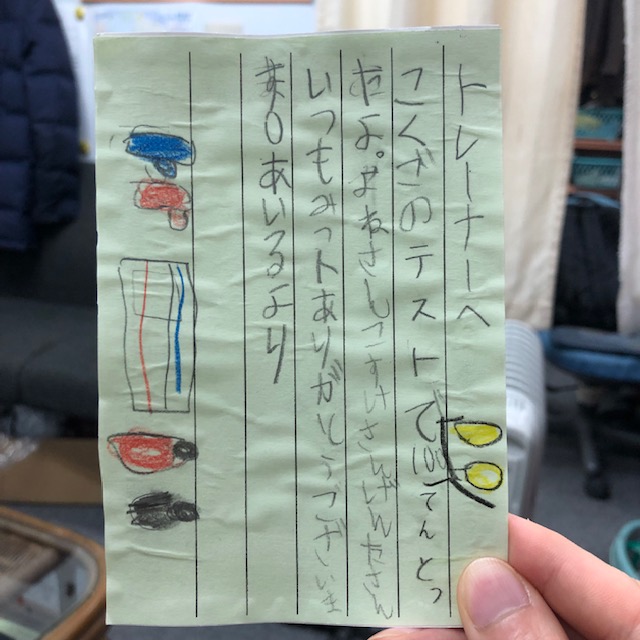 トレーナーへ
こくごのテストで100てんとっ
たよ。よねさんこうすけさんげんたさん
いつもみっトありがとうございま
す。あいるより